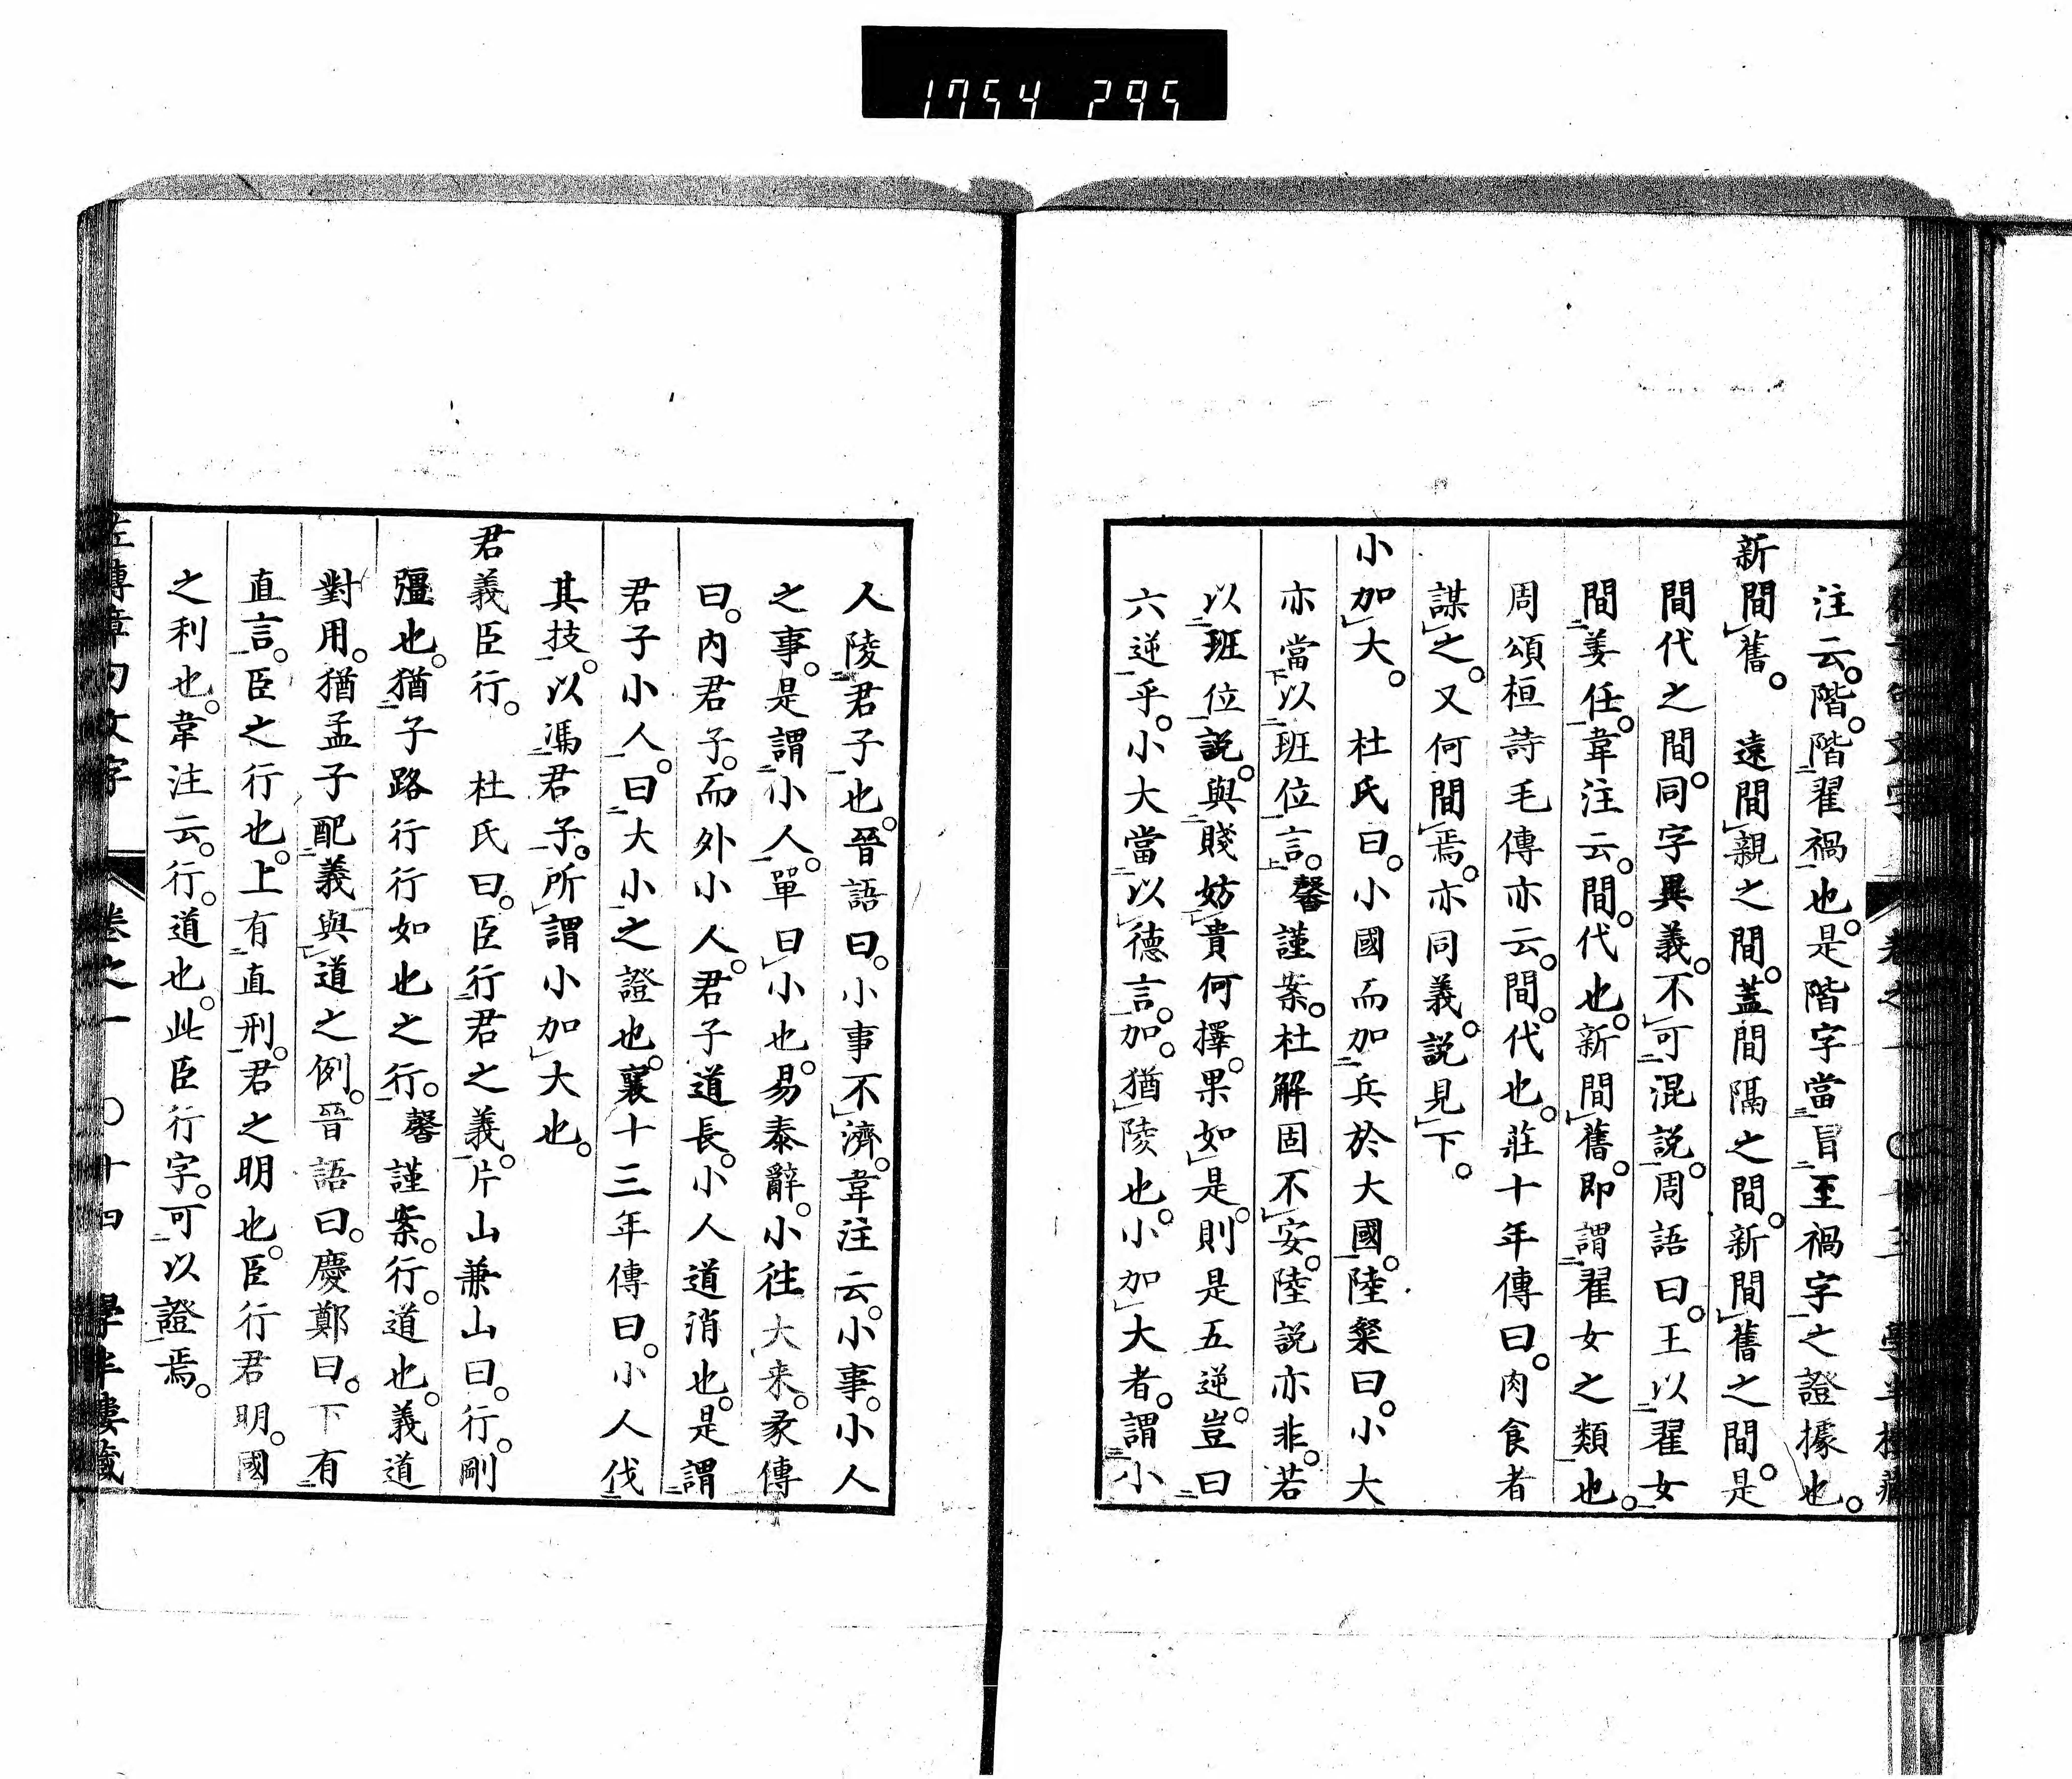 1754 295
注云。階。階翟禍也。是階字當冒至禍字之證據也。
新間舊。遠間親之間。蓋間隔之間。新間舊之間。是
間代之間。同字異義。不可混説。周語曰。王以翟女
間姜任。韋注云。間。代也。新間舊。即謂翟女之類也。
周頌桓詩毛傳亦云。間。代也。莊十年傳曰。肉食者
謀之。又何間焉。亦同義。説見下。
小加大。杜氏曰。小國而加兵於大國。陸粲曰。小大
亦當以班位言。馨謹案。杜解固不安。陸説亦非。若
以班位説。與賤妨貴何擇。果如是。則是五逆。豈曰
六逆乎。小大當以德言。加。猶陵也。小加大者。謂小
人陵君子也。晉語曰。小事不濟。韋注云。小事。小人
之事。是謂小人。單曰小也。易泰辭。小往大来。彖傳
曰。内君子。而外小人。君子道長。小人道消也。是謂
君子小人。曰大小之證也。襄十三年傳曰。小人伐
其技。以馮君子。所謂小加大也。
君義臣行。杜氏曰。臣行君之義。片山兼山曰。行。剛
彊也。猶子路行行如也之行。馨謹案。行。道也。義道
對用。猶孟子配義與道之例。晉語曰。慶鄭曰。下有
直言。臣之行也。上有直刑。君之明也。臣行君明。國
之利也。韋注云。行。道也。此臣行字。可以證焉。
左傳章句文字 卷之一 〇十四 學半樓藏